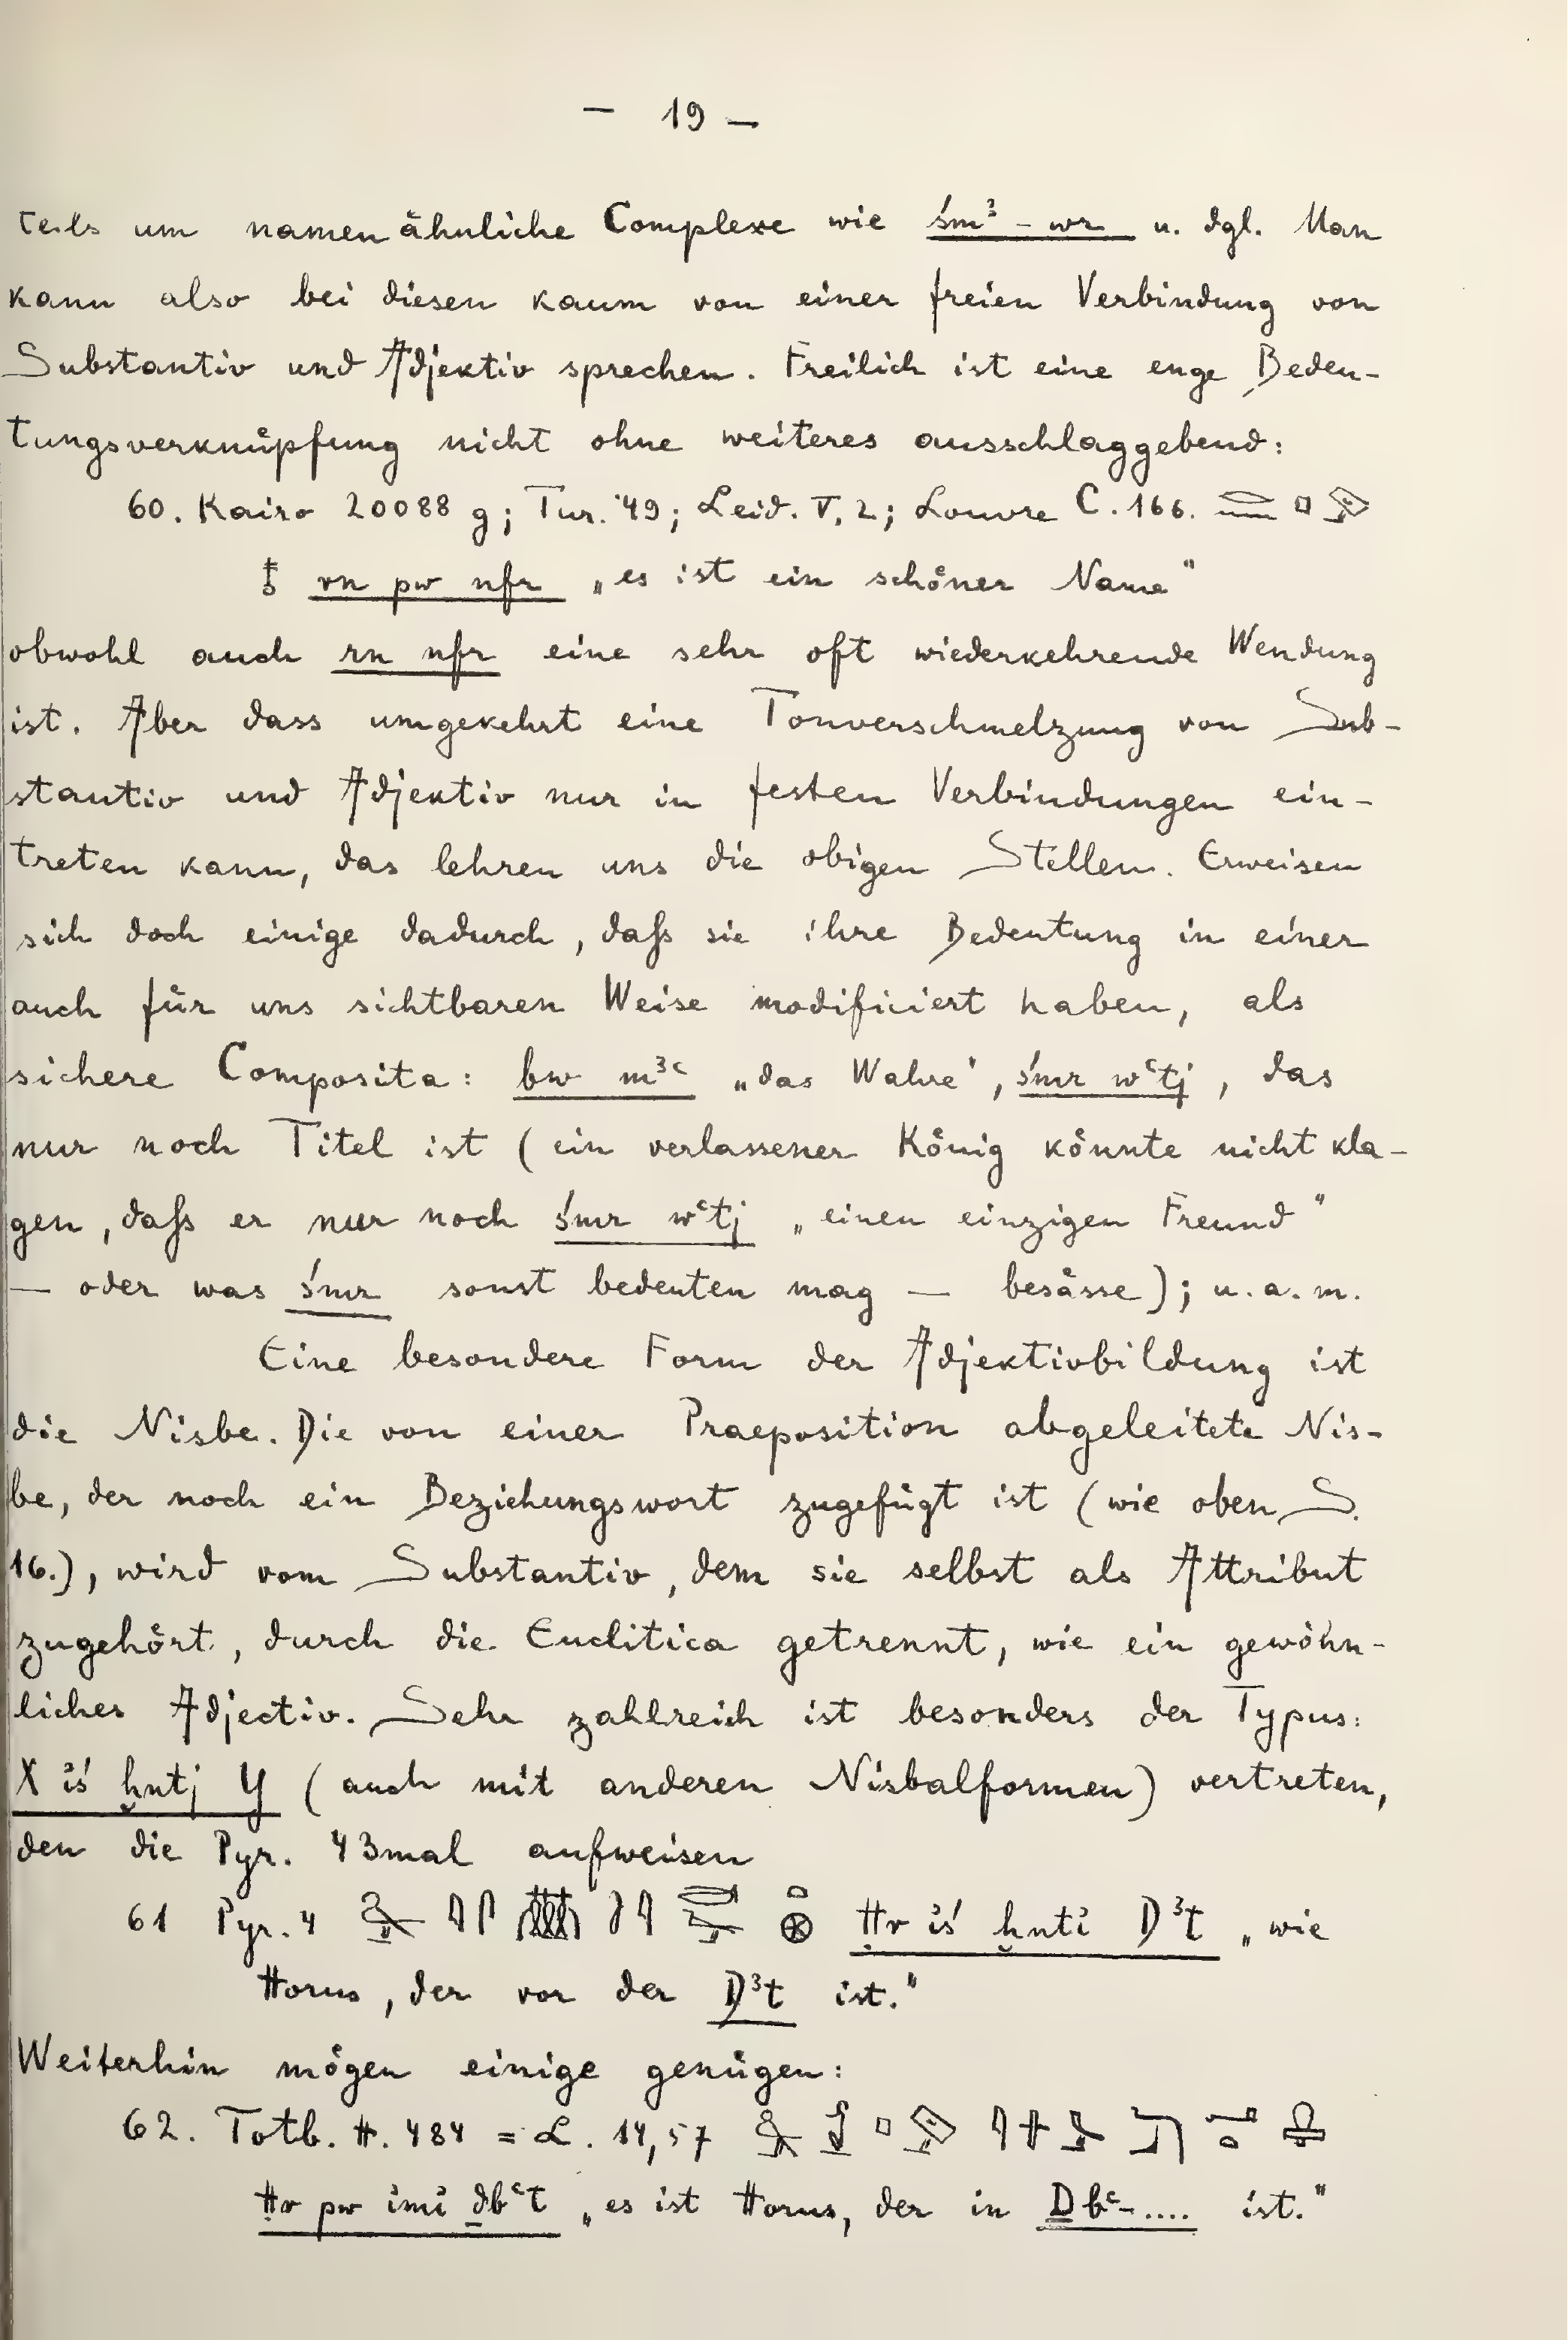 — 19 —
teils um namenähnliche Complexe wie śmꜣ-wr u. dgl. Man
kann also bei diesen kaum von einer freien Verbindung von
Substantiv und Adjektiv sprechen. Freilich ist eine enge Bedeu-
tungsverknüpfung nicht ohne weiteres ausschlaggebend:
60. Kairo 20088 g; Tur. 49; Leid. V, 2; Louvre C. 166.
rn pw nfr „es ist ein schöner Name"
obwohl auch rn nfr eine sehr oft wiederkehrende Wendung
ist. Aber dass umgekehrt eine Tonverschmelzung von Sub-
stantiv und Adjektiv nur in festen Verbindungen ein-
treten kann, das lehren uns die obigen Stellen. Erweisen
sich doch einige dadurch, daſs sie ihre Bedeutung in einer
auch für uns sichtbaren Weise modificiert haben, als
sichere Composita: bw mꜣꜥ „das Wahre', śmr wꜥtj, das
nur noch Titel ist (ein verlassener König könnte nicht kla-
gen, daſs er nur noch śmr wꜥtj „einen einzigen Freund"
— oder was śmr sonst bedeuten mag — besässe); u. a. m.
Eine besondere Form der Adjektivbildung ist
die Nisbe. Die von einer Praeposition abgeleitete Nis-
be, der noch ein Beziehungswort zugefügt ist (wie oben S.
16.), wird vom Substantiv, dem sie selbst als Attribut
zugehört, durch die Enclitica getrennt, wie ein gewöhn-
liches Adjectiv. Sehr zahlreich ist besonders der Typus:
X iś ḫntj Y (auch mit anderen Nisbalformen) vertreten,
den die Pyr. 43mal aufweisen
61 Pyr. 4 Ḥr iś ḫnti Dꜣt „wie
Horus, der vor der Dꜣt ist."
Weiterhin mögen einige genügen:
62. Totb. H. 484 = L. 14,57
Ḥr pw imi ḏbꜥt „es ist Horus, der in Ḏbꜥ-.... ist."